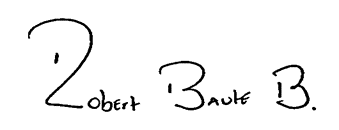 Robert Baute B.